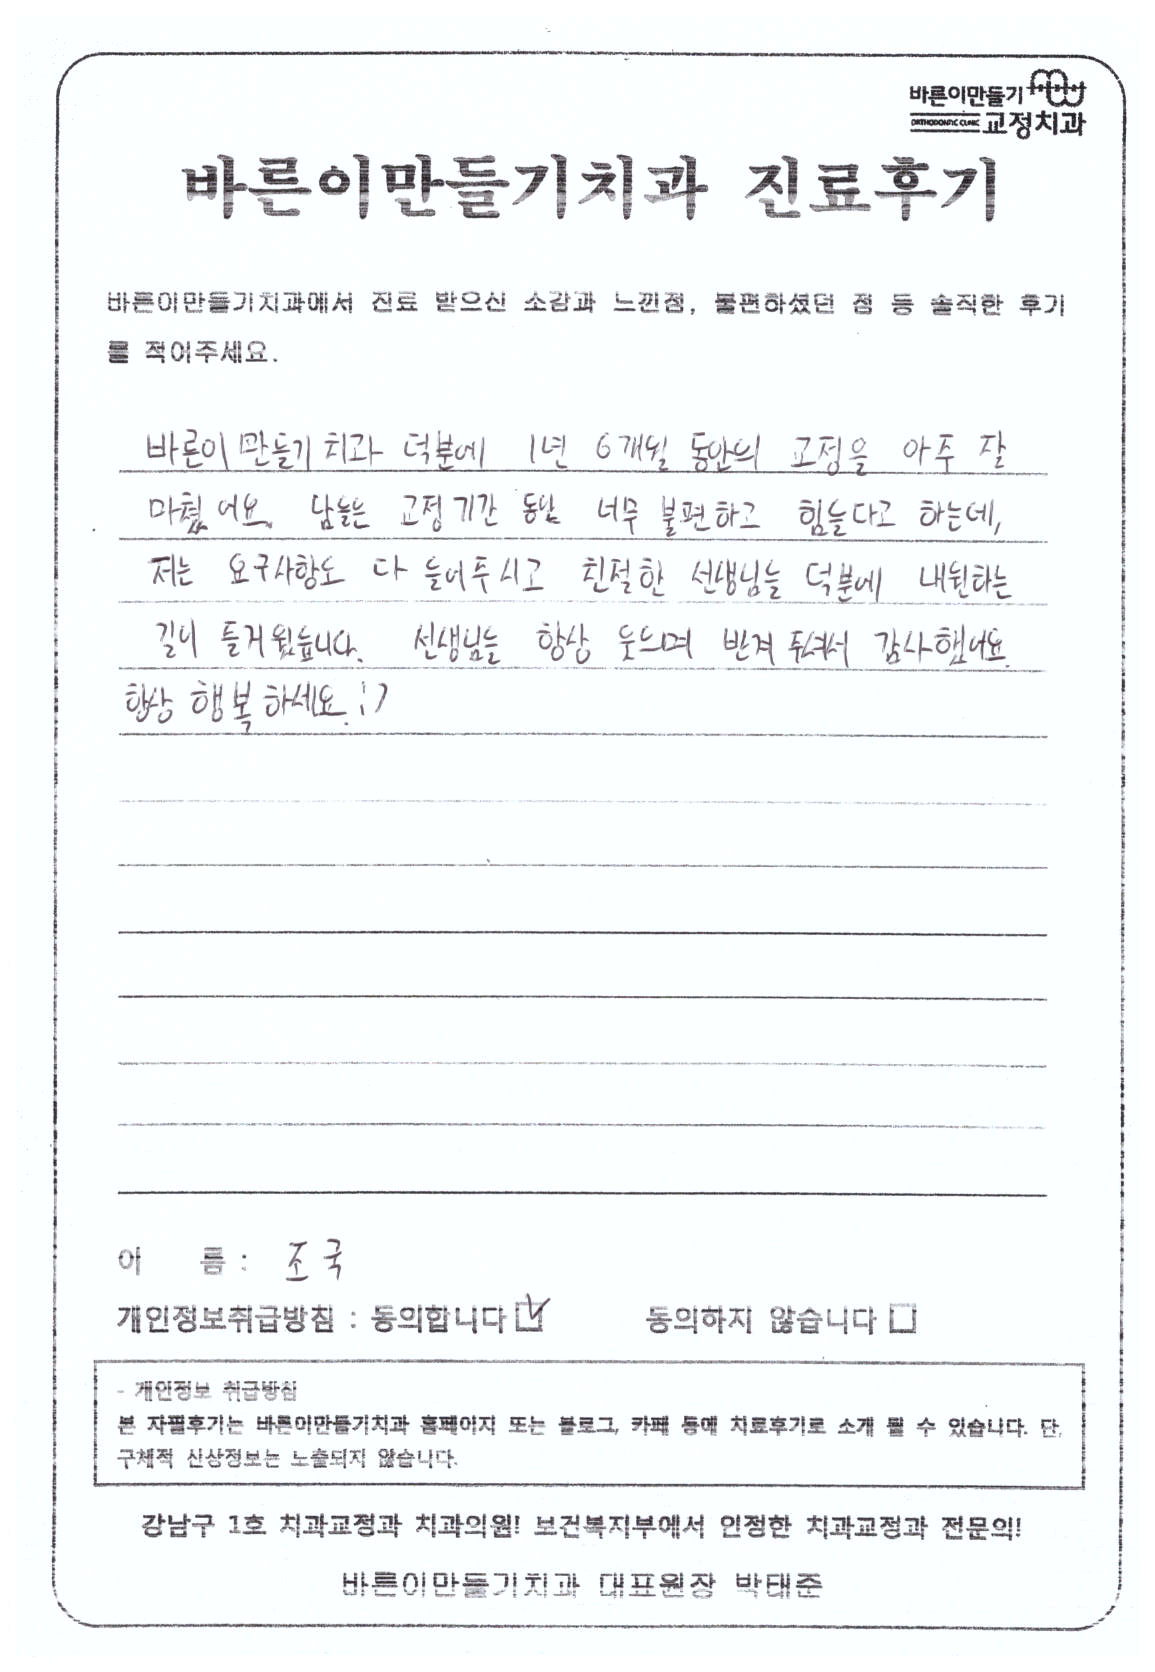 바른이만들기
ORTHODONTIC CLINIC 교정치과
바른이만들기치과 진료후기
바른이만들기치과에서 진료 받으신 소감과 느낀점, 불편하셨던 점 등 솔직한 후기
를 적어주세요.
바른이 만들기 치과 덕분에 1년 6개월 동안의 교정을 아주 잘
마쳤어요. 남들은 교정 기간 동안 너무 불편하고 힘들다고 하는데,
저는 요구사항도 다 들어주시고 친절한 선생님들 덕분에 내원하는
길이 즐거웠습니다. 선생님들 항상 웃으며 반겨 주셔서 감사했어요.
항상 행복하세요. :)
이 름 : 조국
개인정보취급방침 : 동의합니다 동의하지 않습니다
- 개인정보 취급방침
본 자필후기는 바른이만들기치과 홈페이지 또는 블로그, 카페 등에 치료후기로 소개 될 수 있습니다. 단,
구체적 신상정보는 노출되지 않습니다.
강남구 1호 치과교정과 치과의원! 보건복지부에서 인정한 치과교정과 전문의!
바른이만들기치과 대표원장 박태준